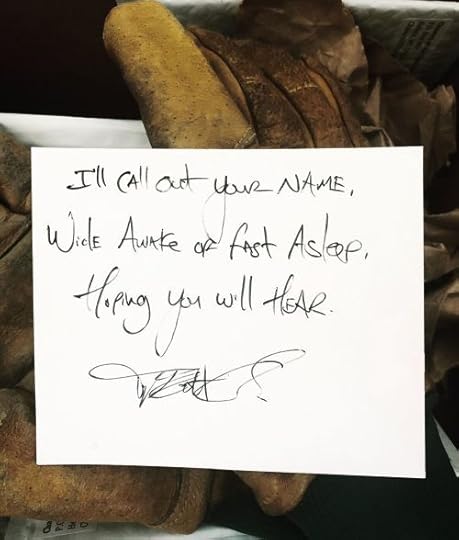 I'll call out your NAME,
Wide Awake or fast Asleep,
Hoping you will HEAR.